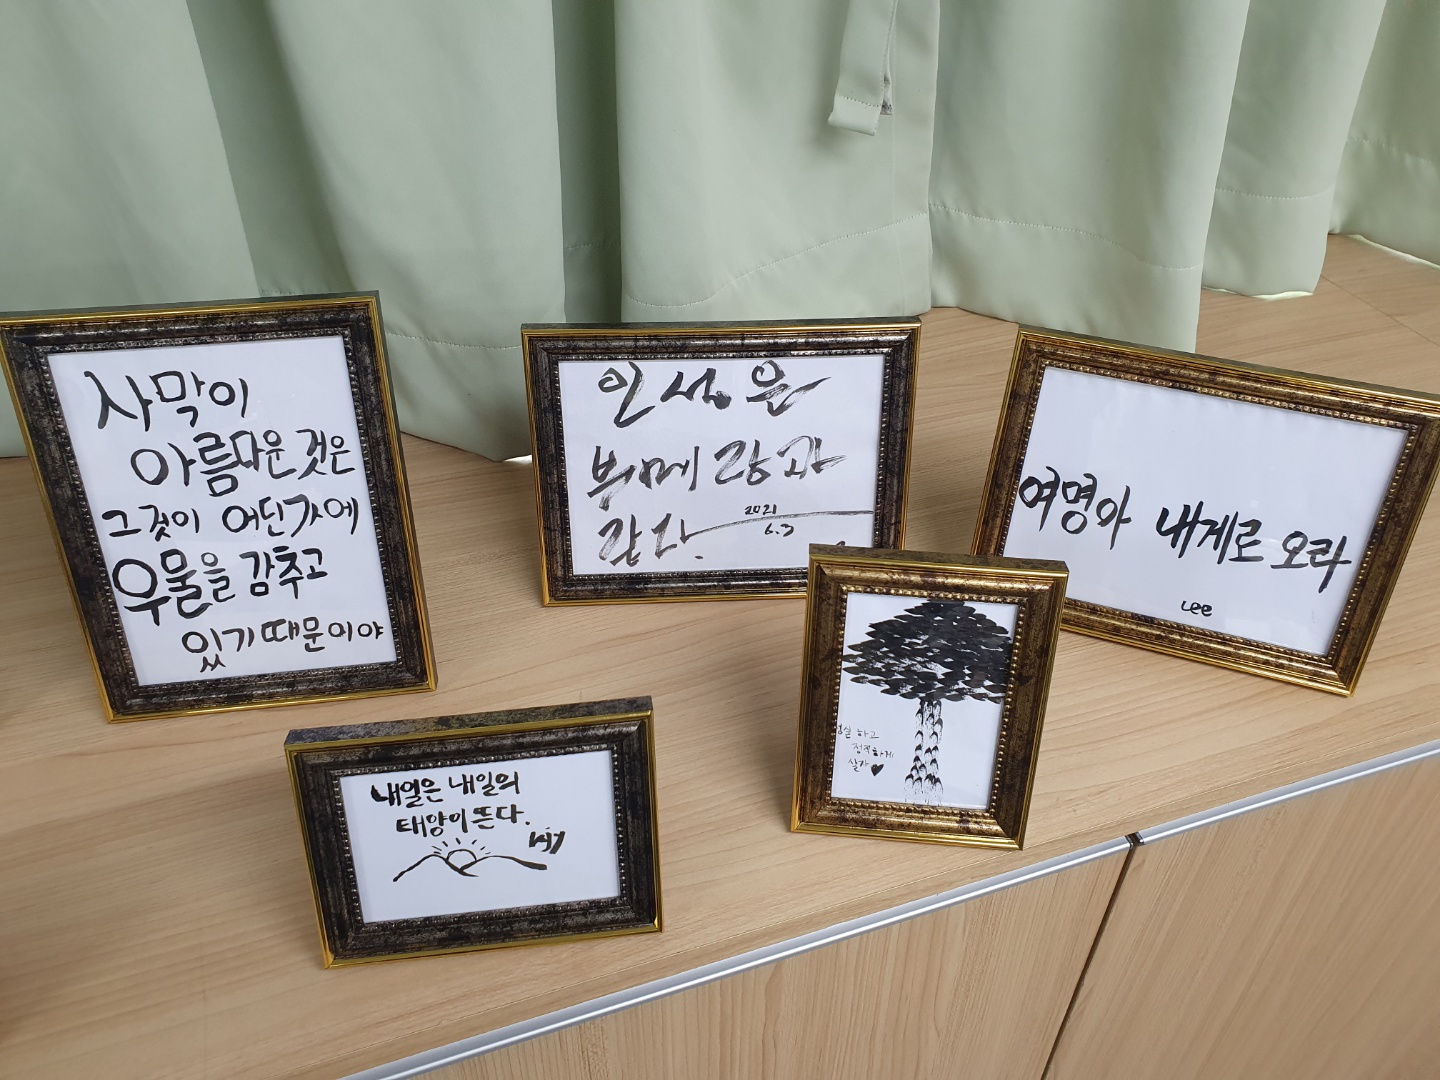 사막이
아름다운 것은
그것이 어딘가에
우물을 감추고
있기 때문이야
인생은
부메랑과
같다.
2021
6.3
여명아 내게로 오라
Lee
내일은 내일의
태양이 뜬다.
하고
정직하게
살자